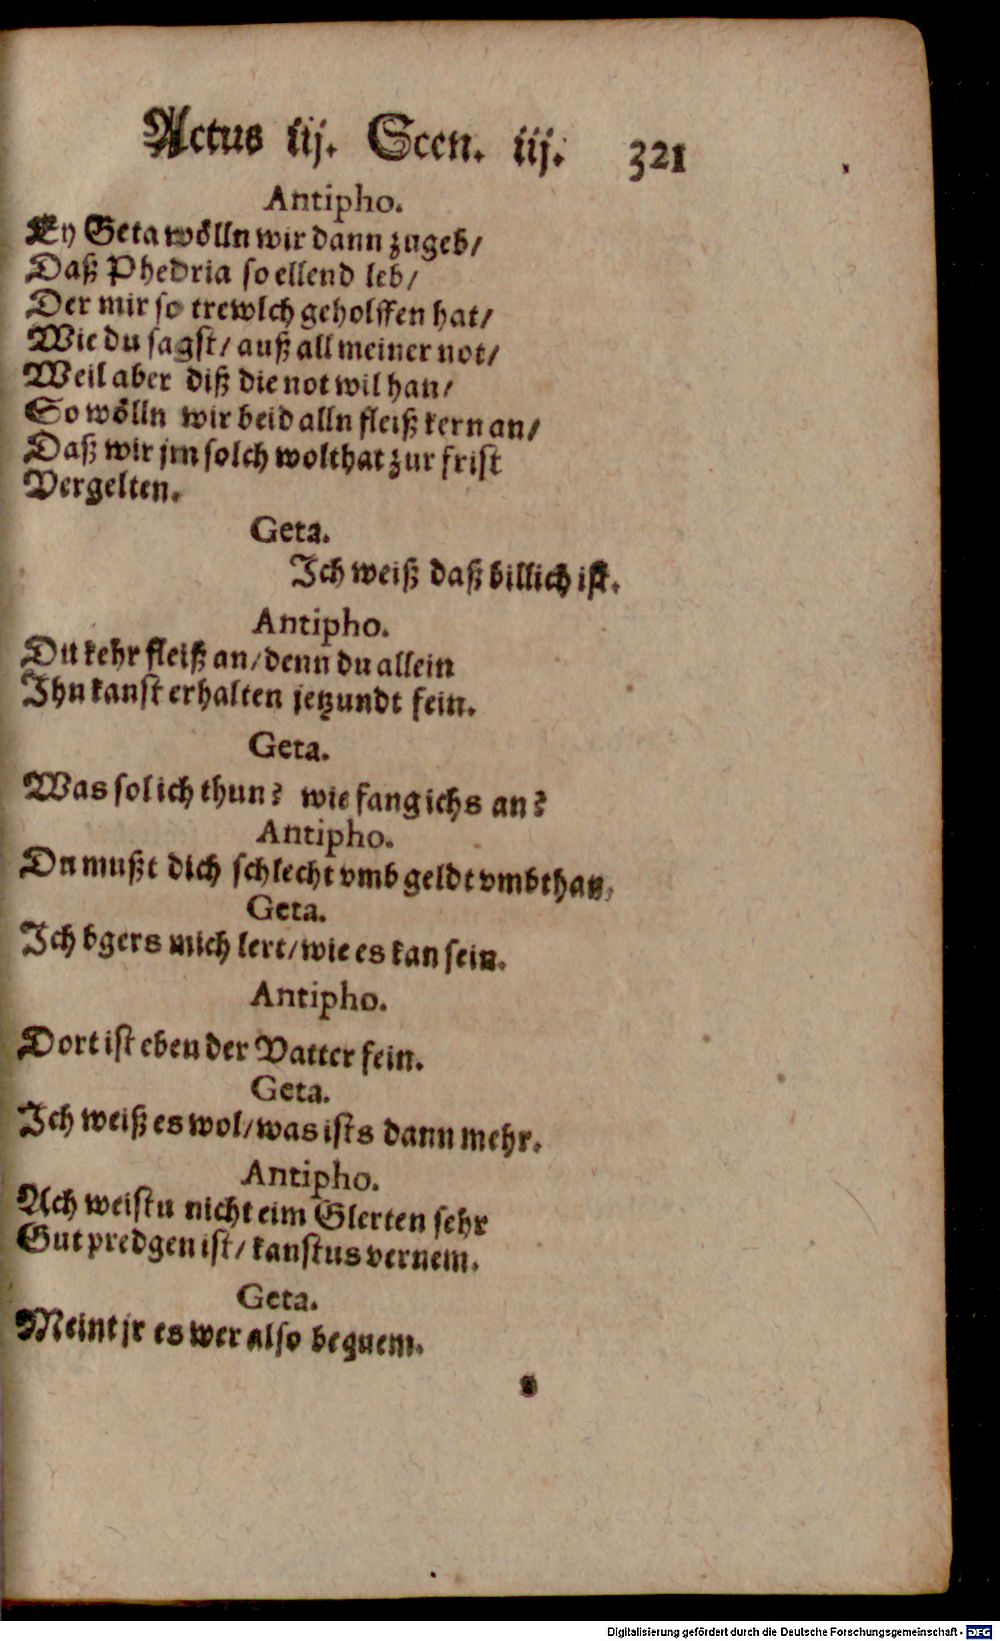 Actus iij. Scen. iij. 321
Antipho.
Ey Geta wölln wir dann zugeb/
Daß Phedria so ellend leb/
Der mir so trewlch geholffen hat/
Wie du sagst/ auß all meiner not/
Weil aber diß die not wil han/
So wölln wir beid alln fleiß kern an/
Daß wir jm solch wolthat zur frist
Vergelten.
Geta.
Ich weiß daß billich ist.
Antipho.
Du kehr fleiß an/ denn du allein
Ihn kanst erhalten jetzundt fein.
Geta.
Was sol ich thun? wie fang ichs an?
Antipho.
Du mußt dich schlecht vmb geldt vmbthan,
Geta.
Ich bgers mich lert/ wie es kan sein.
Antipho.
Dort ist eben der Vatter fein.
Geta.
Ich weiß es wol/ was ists dann mehr.
Antipho.
Ach weistu nicht eim Glerten sehr
Gut predgen ist/ kanstus vernem.
Geta.
Meint jr es wer also bequem.
Digitalisierung gefördert durch die Deutsche Forschungsgemeinschaft - DFG